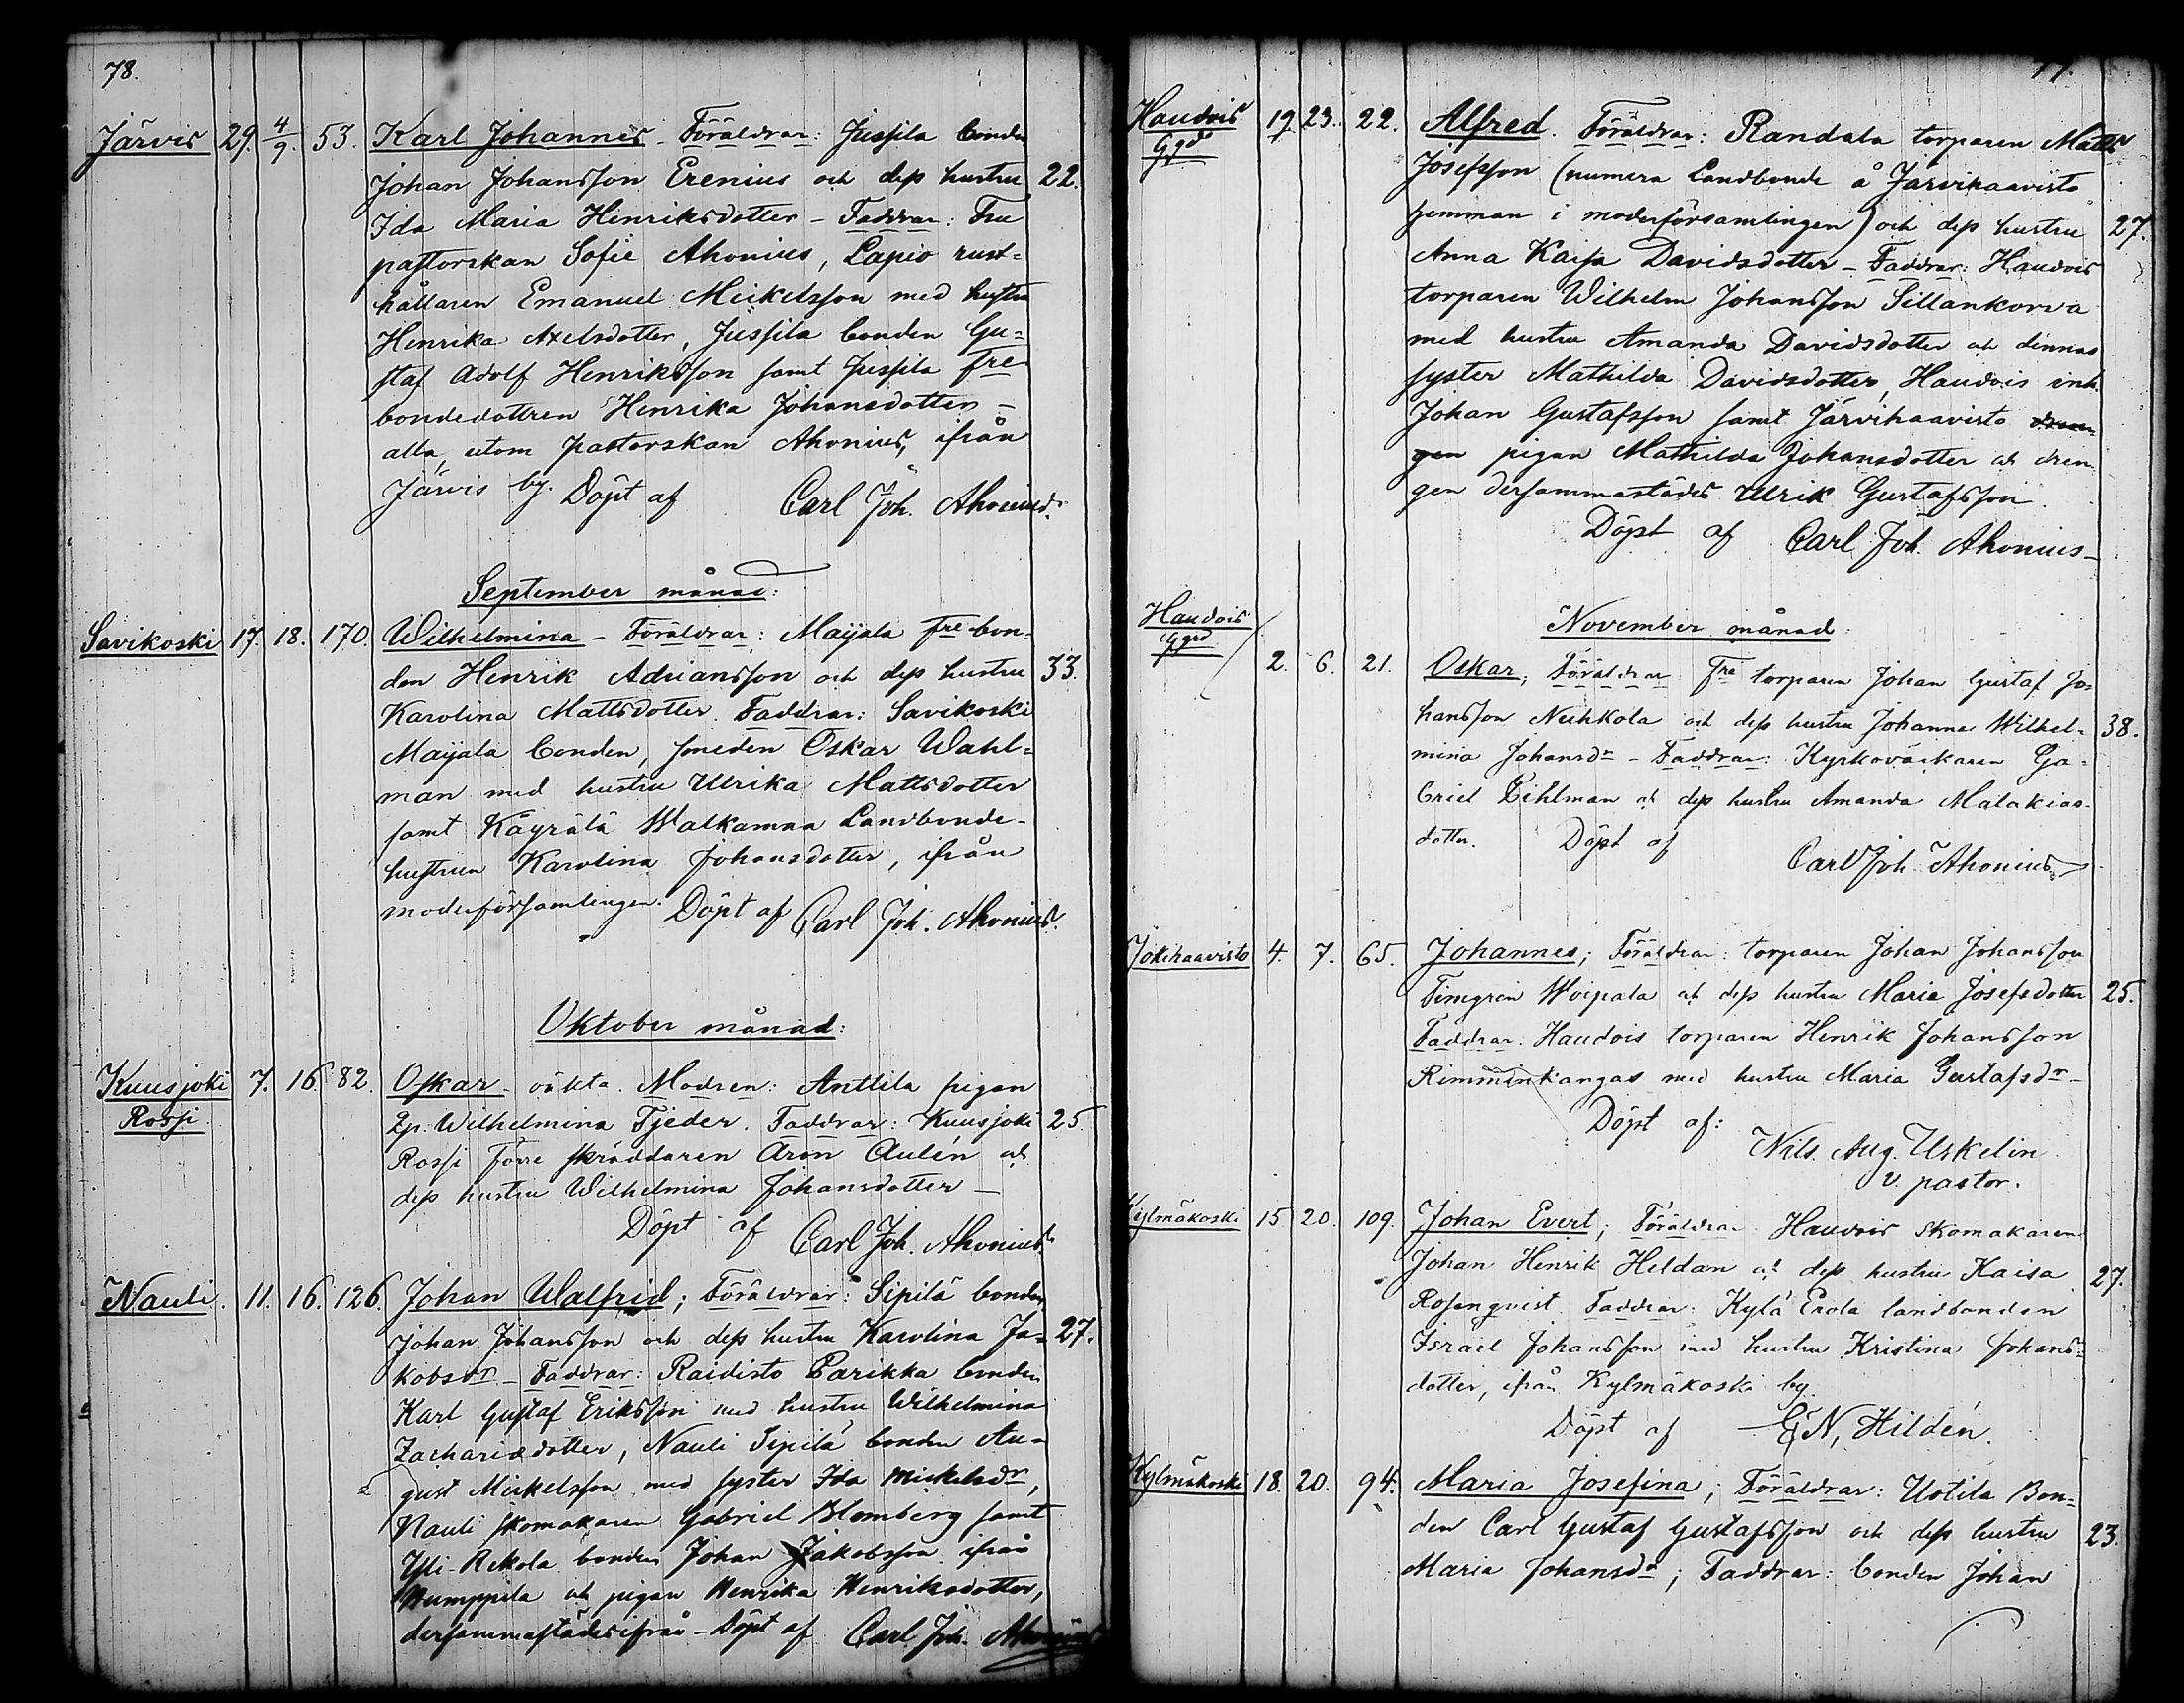 78.
Järvis 29. 4/9. 53. Karl Johannes - Föräldrar: Jussila bonden
Johan Johansson Erenius och dess hustru 22.
Ida Maria Henriksdotter - Faddrar: Fru
pastorskan Sofie Ahonius, Lapio rust=
hållaren Emanuel Mickelsson med hustru
Henrika Axelsdotter, Jussila bonden Gu=
staf Adolf Henriksson samt Jussila fre
bondedottren Henrika Johansdotter -
alla, utom pastorskan Ahonius, ifrån
Järvis by. Döpt af Carl Joh. Ahonius.
September månad:
Savikoski 17. 18. 170. Wilhelmina - Föräldrar: Maijala fre bon=
den Henrik Adriansson och dess hustru 33.
Karolina Mattsdotter. Faddrar: Savikoski
Maijala bonden, smeden Oskar Wahl=
man med hustru Ulrika Mattsdotter
samt Käyrälä Walkamaa Landbonde-
hustrun Karolina Johansdotter, ifrån
moderförsamlingen. Döpt af Carl Joh. Ahonius.
Oktober månad:
Kuusjoki 7. 16. 82. Oskar - oäkta. Modren: Anttila pigan
Rossi. Lp. Wilhelmina Tjeder. Faddrar: Kuusjoki 25.
Rossi förre skräddaren Aron Aulén och
dess hustru Wilhelmina Johansdotter -
Döpt af Carl Joh. Ahonius.
Nauli. 11. 16. 126. Johan Walfrid; Föräldrar: Sipilä bonden
Johan Johansson och dess hustru Karolina Ja= 27.
kobsdr - Faddrar: Raidisto Parikka bonden
Karl Gustaf Eriksson med hustru Wilhelmina
Zachariædotter, Nauli Sipilä bonden Au=
gust Mickelsson med syster Ida Mickelsdr,
Nauli skomakaren Gabriel Blomberg samt
Yli-Rekola bonden Johan Jakobsson ifrån
Humppila och pigan Henrika Henriksdotter,
dersammastädes ifrån - Döpt af Carl Joh. Ahonius
Haudois 19 23. 22. Alfred. Föräldrar: Randala torparen Matts
Ggd Josefsson (numera Landbonde å Järvihaavisto
hemman i moderförsamlingen) och dess hustru 27.
Anna Kaisa Davidsdotter - Faddrar: Haudois
torparen Wilhelm Johansson Sillankorva
med hustru Amanda Davidsdotter och dennas
syster Mathilda Davidsdotter, Haudois inh.
Johan Gustafsson samt Järvihaavisto dren-
gen pigan Mathilda Johansdotter och dren-
gen dersammastädes Ulrik Gustafsson.
Döpt af Carl Joh. Ahonius -
November månad:
Haudois
Ggrd
2. 6. 21. Oskar; Föräldrar fre torparen Johan Gustaf Jo=
hansson Nuhkola och dess hustru Johanna Wilhel= 38.
mina Johansdr - Faddrar: Kyrkoväckaren Ga=
briel Pihlman och dess hustru Amanda Malakias-
dotter. Döpt af Carl Joh. Ahonius
Jokihaavisto 4. 7. 65. Johannes; Föräldrar: torparen Johan Johansson
Timgrén Woipala och dess hustru Maria Josefsdotter 25.
Faddrar. Haudois torparen Henrik Johansson
Rimminkangas med hustru Maria Gustafsdr -
Döpt af: Nils Aug. Uskelin
v. pastor.
Kylmäkoski 15 20. 109. Johan Evert; Föräldrar Haudois skomakaren
Johan Henrik Heldan och dess hustru Kaisa 27.
Rosenqvist. Faddrar: Kylä Erola landbonden
Israel Johansson med hustru Kristina Johans=
dotter, ifrån Kylmäkoski by.
Döpt af G. N. Hildén.
Kylmäkoski 18. 20. 94. Maria Josefina; Föräldrar: Uotila Bon=
den Carl Gustaf Gustafsson och dess hustru 23.
Maria Johansdr; Faddrar: bonden Johan